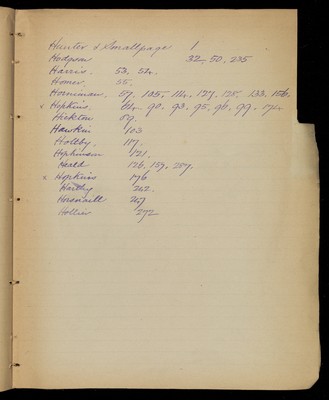 Hunter & Smallpage 1
Hodgson 32, 50, 235
Harris. 53, 54.
Homer 55.
Horniman. 57, 105, 114, 127, 128, 133, 156,
x Hopkins. 64, 90, 93, 95, 96, 99, 174
Hickton 89.
Hawkin 103
Holtby. 117.
Hopkinson 121.
Heald 126, 157, 257.
x Hopkins 176
Hartley 242.
247
Hollier 272